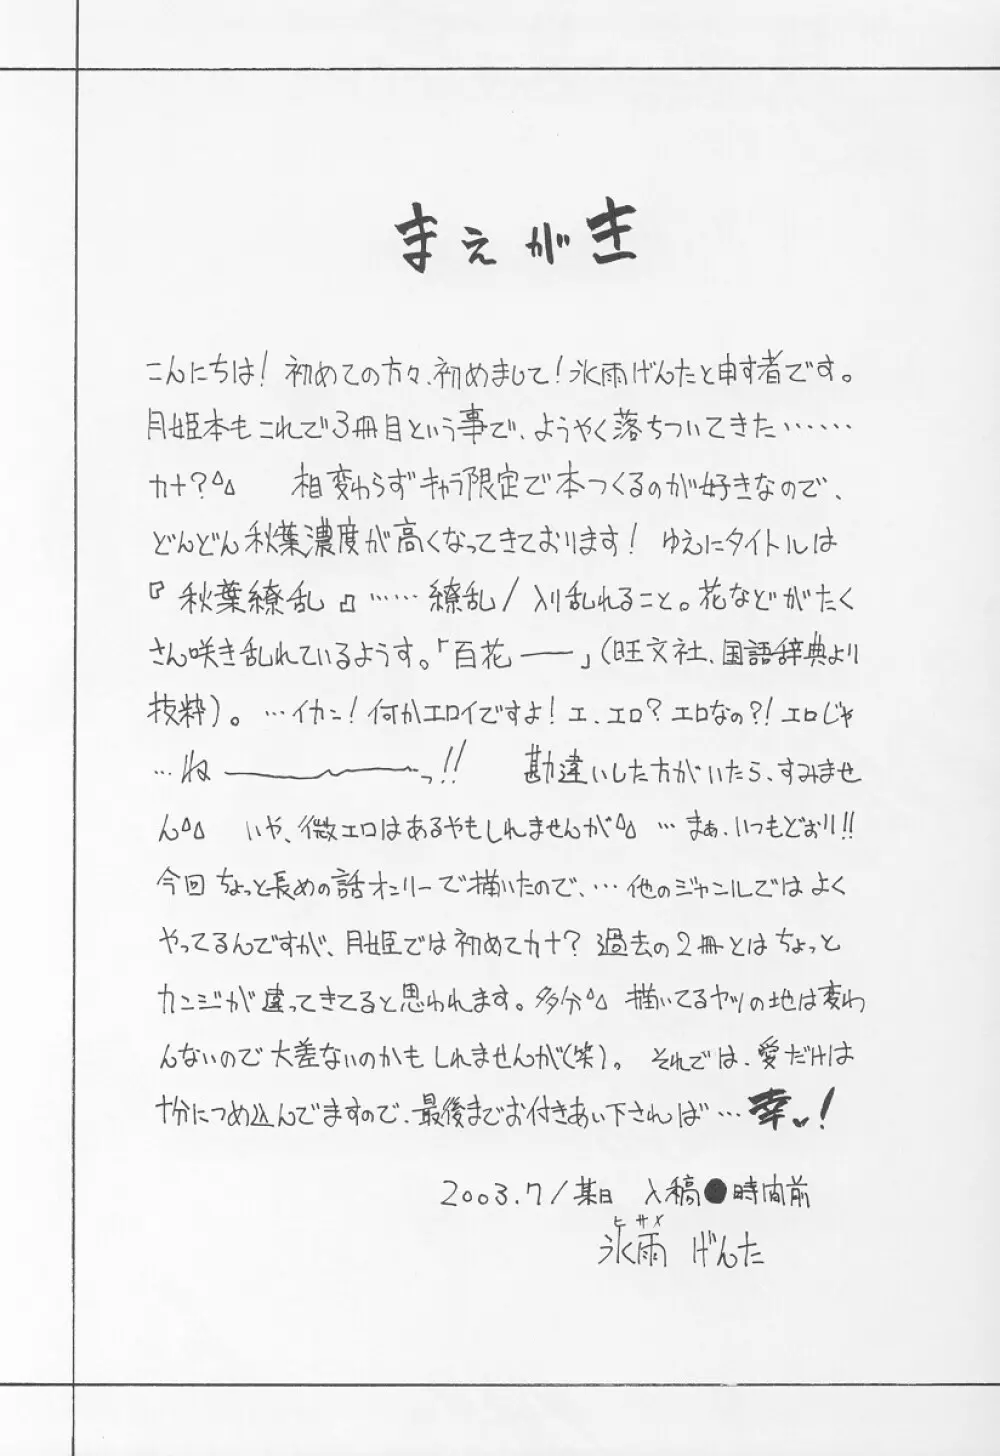 まえがき
こんにちは！初めての方々、初めまして！氷雨げんたと申す者です。
月姫本もこれで3冊目という事で、ようやく落ちついてきた……
カナ？^^ 相変わらずキャラ限定で本つくるのが好きなので、
どんどん秋葉濃度が高くなってきております！ゆえにタイトルは
『秋葉繚乱』……繚乱／入り乱れること。花などがたく
さん咲き乱れているようす。「百花──」（旺文社、国語辞典より
抜粋）。…イカン！何かエロイですよ！エ、エロ？エロなの？！エロじゃ
…ね────っ！！ 勘違いした方がいたら、すみませ
ん^^ いや、微エロはあるやもしれませんが^^ …まぁ、いつもどおり！！
今回ちょっと長めの話オンリーで描いたので、…他のジャンルではよく
やってるんですが、月姫では初めてカナ？過去の2冊とはちょっと
カンジが違ってきてると思われます。多分^^ 描いてるヤツの地は変わ
んないので大差ないのかもしれませんが（笑）。それでは、愛だけは
十分につめ込んでますので、最後までお付きあい下されば…幸っ！
2003.7／某日 入稿●時間前
ヒサメ
氷雨 げんた